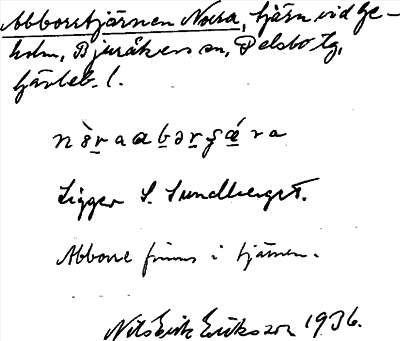 Abborrtjärnen Norra, tjärn vid Ge-
holm, Bjuråkers sn, Delsbo tg,
Gävleb. l.
Ligger S. Sundbergst.
Abborre finns i tjärnen.
Nils Erik Eriksson 1936.